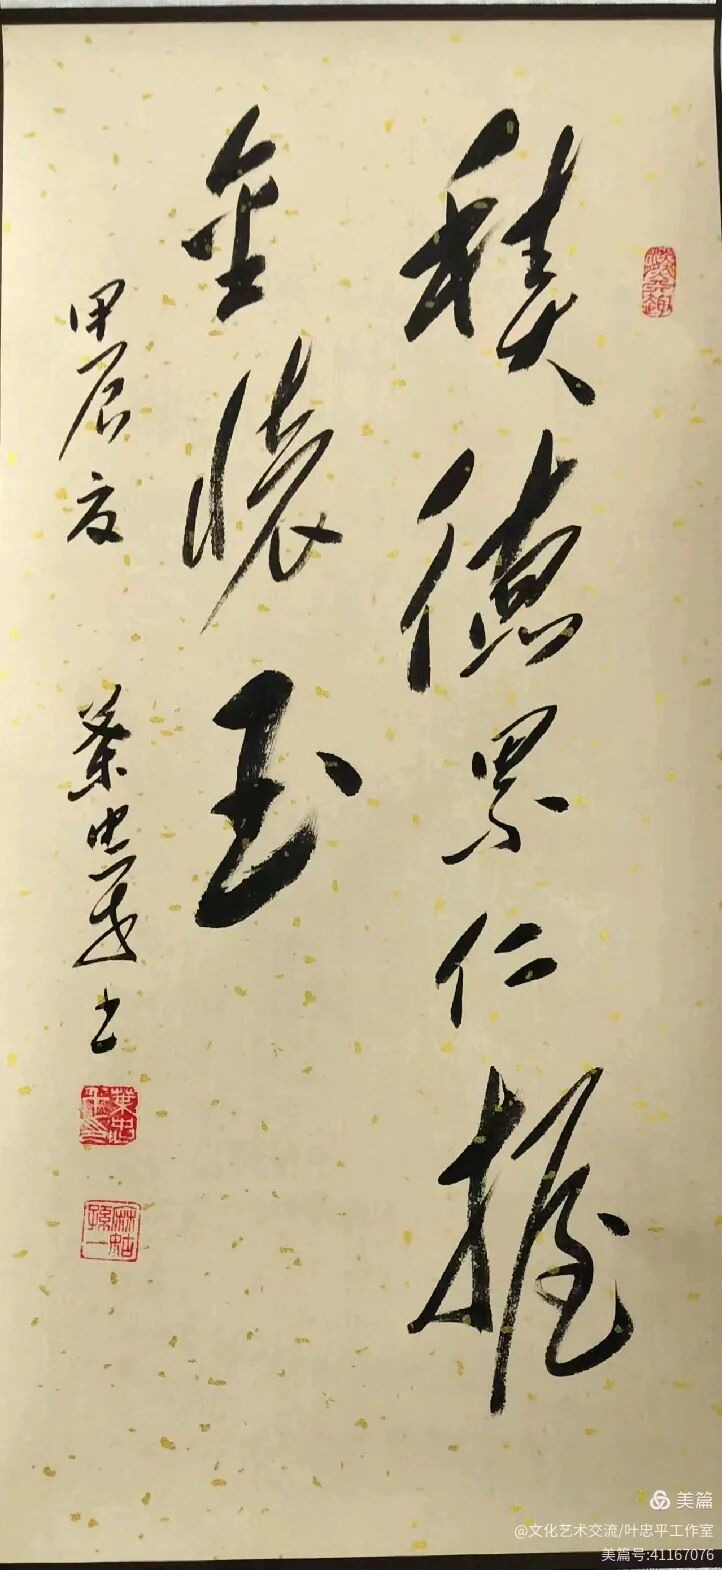 積德累仁握
金懷玉
甲辰夏 葉忠平书
葉忠平印
美篇
@文化艺术交流/叶忠平工作室
美篇号:41167076